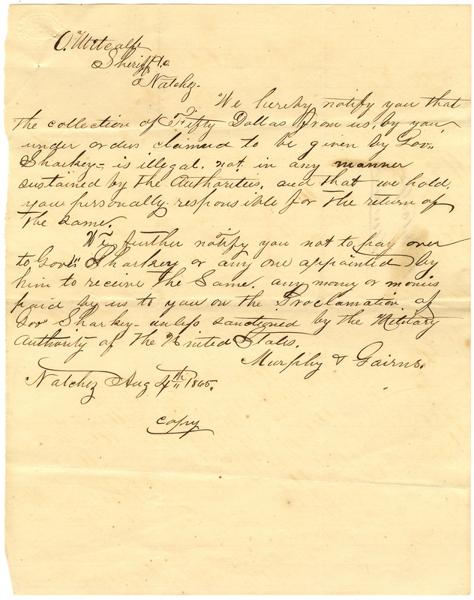 O. Metcalfe
Sheriff &c
Natchez.
We hereby notify you that
the collection of Fifty Dollars from us, by you,
under orders claimed to be given by Gov.
Sharkey - is illegal. not in any manner
sustained by the Authorities, and that we hold
you personally responsible for the return of
the same.
We further notify you not to pay over
to Gov. Sharkey or any one appointed by
him to receive the same, any money or monies
paid by us to you on the Proclamation of
Gov Sharkey - unless sanctioned by the Military
Authority of the United States.
Murphy & Gairns.
Natchez Aug 4th 1865.
copy